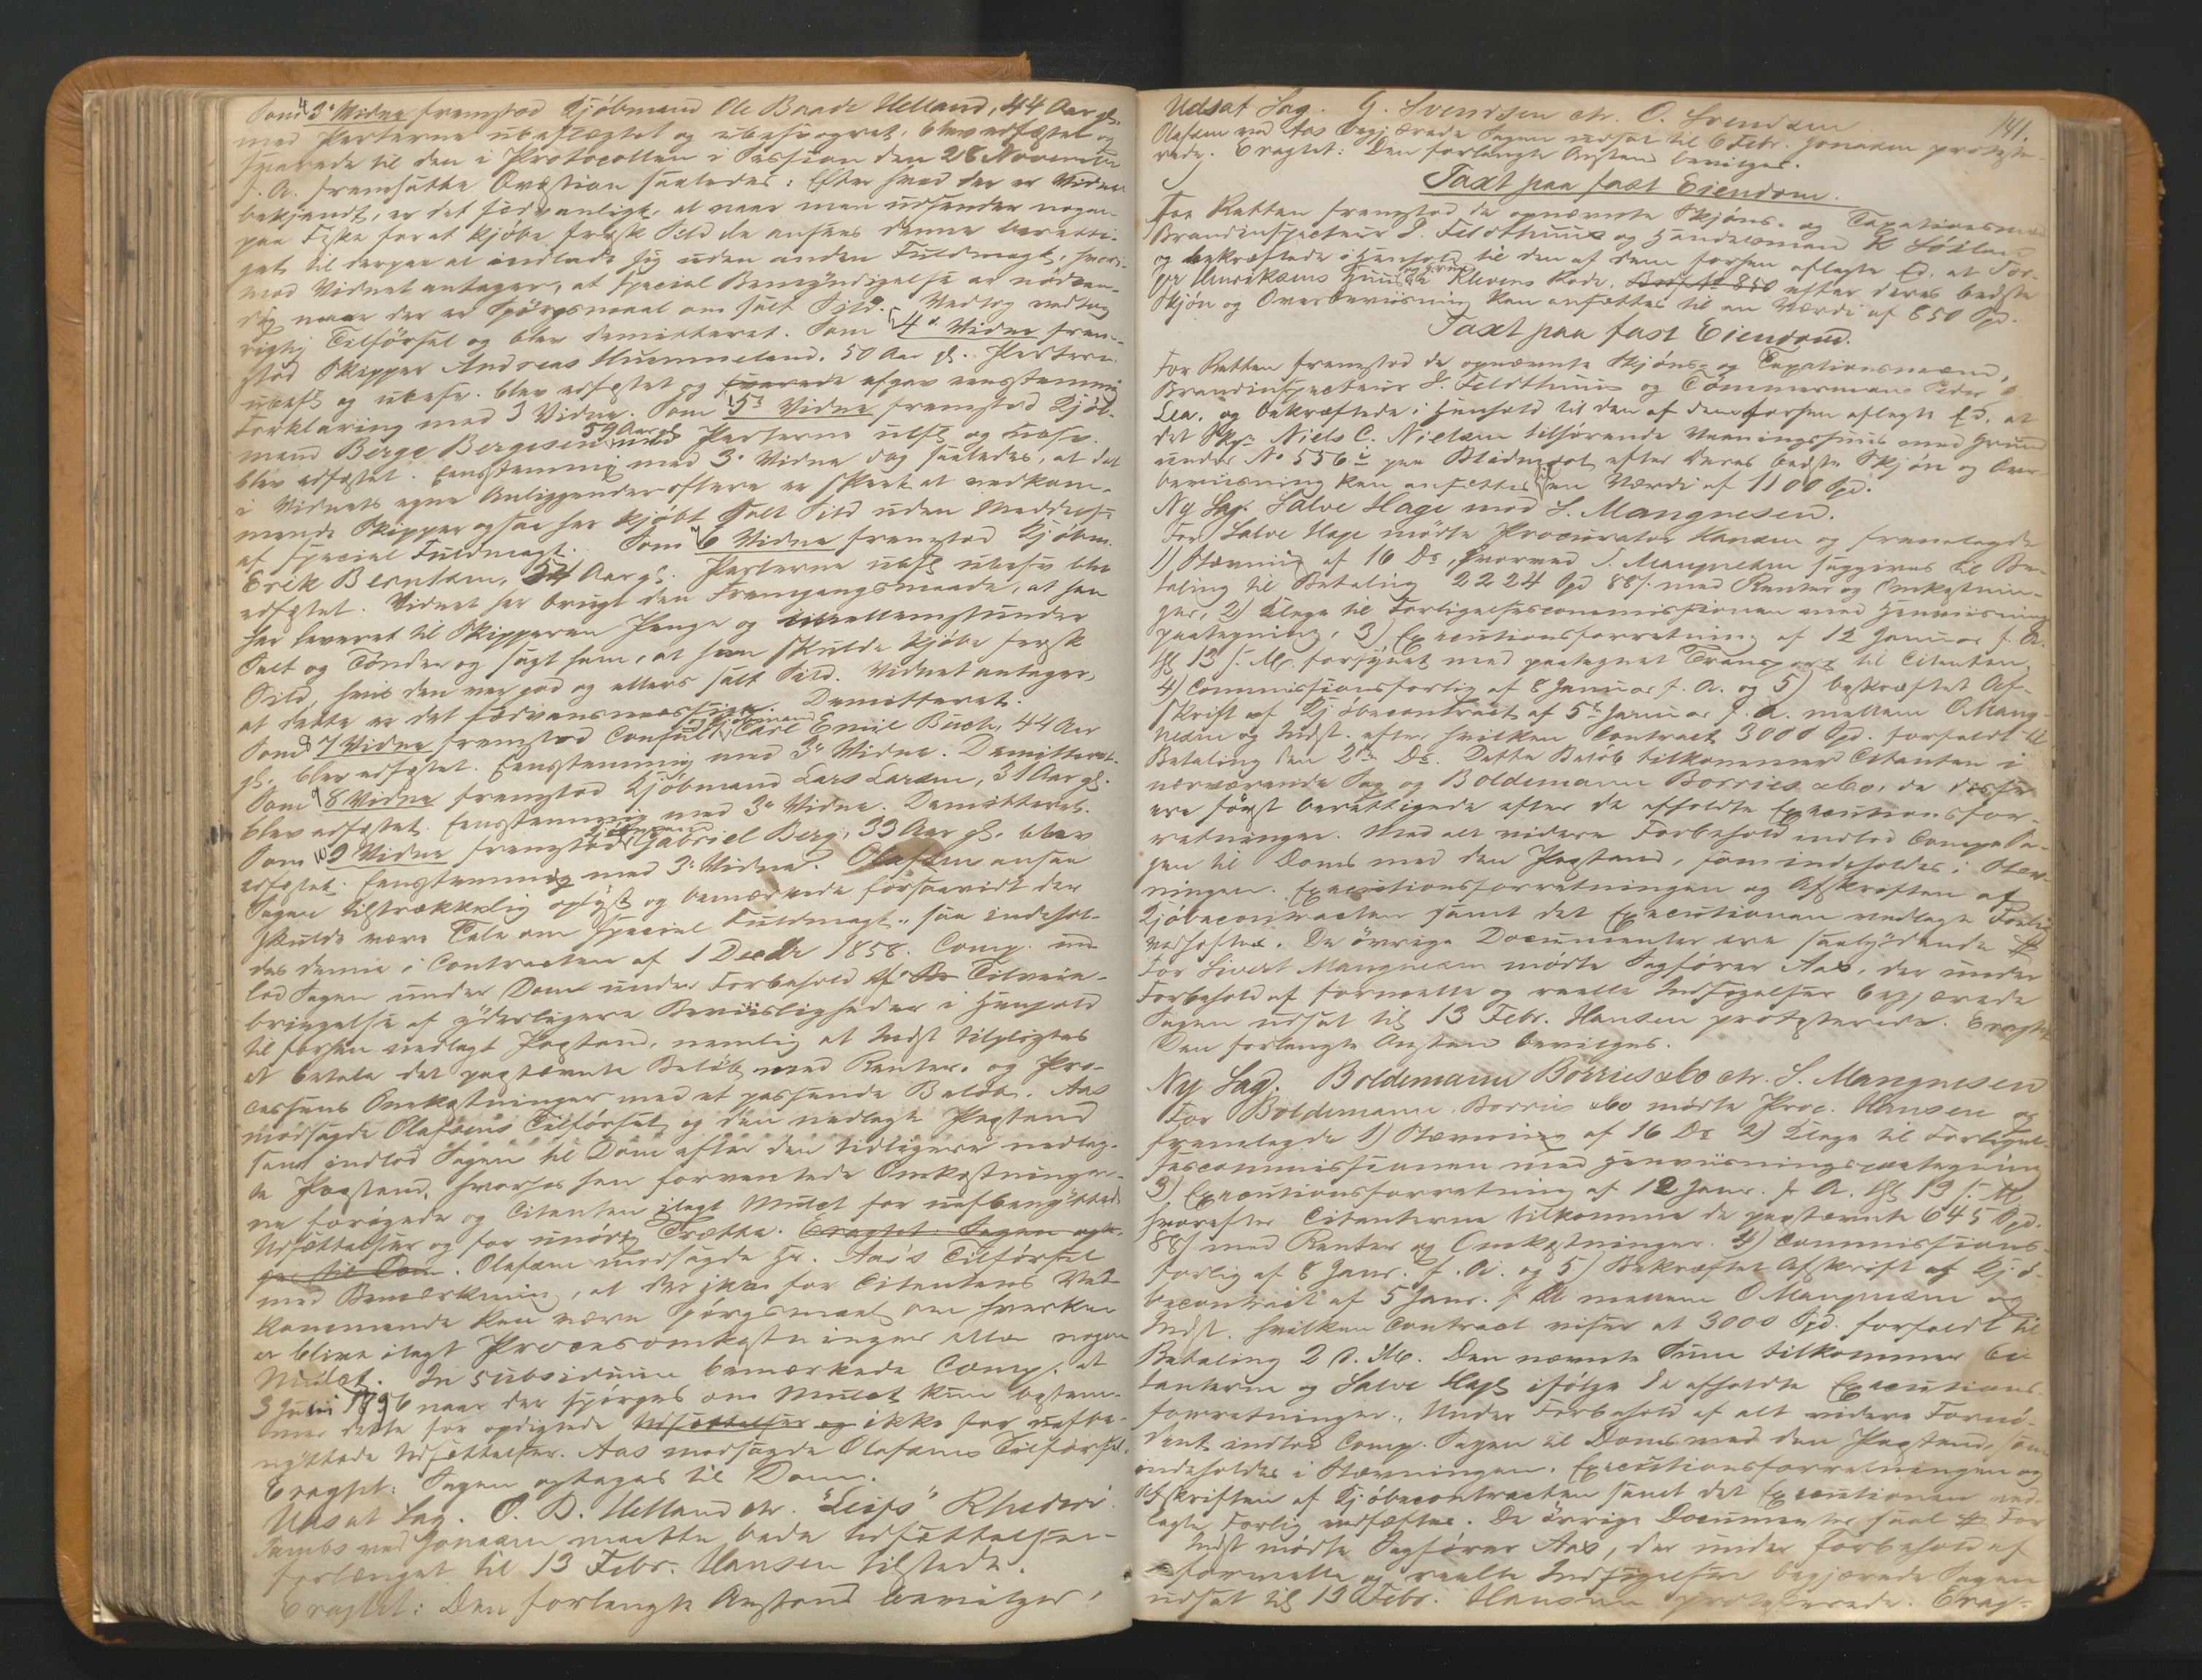 Som 3d Vidne fremstod Kjöbmand Ole Baade Helland, 44 Aar gl.
med Parterne ubeslægtet og ubesvogret, blev edfæstet og
svarede til den i Protocollen i Session den 28 November
f. A. fremsatte Qvæstion saaledes: Efter hvad der er Vidnet
bekjendt, er det sædvanligt, at naar man udsender nogen
paa Fiske for at kjöbe fersk Sild da ansees denne beretti-
get til derpaa at indlade sig uden anden Fuldmagt, hvori-
mod Vidnet antager, at special Bemyndigelse er nödven-
dig naar der er Spörgsmaal om salt Sild. Vedtog
rigtig Tilförsel og blev demitteret. Som 4d Vidne frem-
stod Skipper Andreas Hummeland, 50 Aar gl. Parterne
ubesl og ubesv. blev edfæstet og svarede afgav eensstemmig
Forklaring med 3 Vidne. Som 5t Vidne fremstod Kjöb-
mand Berge Bergesen 59 Aar gl med Parterne ubsl og ubsv.
blev edfæstet. Eensstemmig med 3d Vidne dog saaledes, at det
i Vidnets egne Anliggender oftere er skeet at vedkom-
mende Skipper ogsaa har kjöbt salt Sild uden Meddelelse
af special Fuldmagt. Som 6 Vidne fremstod Kjöbm.
Erik Berntsen, 54 Aar gl. Parterne ubsl ubesv blev
edfæstet. Vidnet har brugt den Fremgangsmaade, at han
har leveret til Skipperen Penge og tillige
Salt og Tönder og sagt ham, at han skulde kjöbe fersk
Sild, hvis den var god og ellers salt Sild. Vidnet antager,
at dette er det sædvansmæssige. Demitteret.
Som 7 Vidne fremstod Consul og Kjöbmand Carl Emil Buch, 44 Aar
gl. blev edfæstet. Eensstemmig med 3d Vidne. Demitteret.
Som 8 Vidne fremstod Kjöbmand Lars Larsen, 31 Aar gl.
blev edfæstet. Eensstemmig med 3d Vidne. Demitteret.
Som 9 Vidne fremstod Kjöbmand Gabriel Berg, 33 Aar gl. blev
edfæstet. Eensstemmig med 3d Vidne. Olafsen ansaa
Sagen tilstrækkelig oplyst og bemærkede forsaavidt der
skulde være Tale om special Fuldmagt, saa indehol-
des denne i Contracten af 1 Decbr 1858. Comp. ind-
lod Sagen under Dom under Forbehold af Tilveie-
bringelse af yderligere Beviisligheder i Henhold
til forhen nedlagt Paastand, nemlig at Indst tilpligtes
at betale det paastævnte Belöb med Renter og Pro-
cessens Omkostninger med et passende Belöb. Aas
modsagde Olafsens Tilförsel og den nedlagte Paastand
samt indlod Sagen til Dom efter den tidligere nedlag-
te Paastand, hvorhos han forventede Omkostninger-
ne forögede og Citanten ilagt Mulct for uafbenyttede
Udsættelser og for unödig Trætte. Eragtet: Sagen opta-
ges til Dom. Olafsen modsagde Hr. Aas's Tilförsel
med Bemærkning, at der ikke for Citantens Ved-
kommende kan være Spörgsmaal om hverken
at blive ilagt Procesomkostninger eller nogen
Mulct. In subsidium bemærkede Comp. at
3 Juni 1796 naar der spörges om Mulct kun bestem-
mer dette for opdigtede Udsættelser og ikke for uafbe-
nyttede Udsættelser. Aas modsagde Olafsens Tilförsel.
Eragtet: Sagen optages til Dom.
Udsat Sag. O. B. Helland ctr. "Leifs" Rhederi.
Tambs ved Jonassen maatte bede Udsættelsen
forlænget til 13 Febr. Hansen tilstede.
Eragtet: Den forlangte Anstand bevilges.
141.
Udsat Sag. G. Svendsen ctr. O. Svendsen
Olafsen ved Aas begjærede Sagen udsat til 6 Febr. Jonassen proteste-
rede. Eragtet: Den forlangte Anstand bevilges.
Taxt paa fast Eiendom.
For Retten fremstod de opnævnte Skjöns- og Taxationsmænd
Brandinspecteur J. Feldthuus og Handelsmand
og bekræftede i Henhold til den af dem forhen aflagte Ed, at
Henriksens Huus og Grund Klevens Rode, efter deres bedste
Skjön og Overbeviisning kan ansættes til en Værdi af 850 Spd.
Taxt paa fast Eiendom.
For Retten fremstod de opnævnte Skjöns- og Taxationsmænd,
Brandinspecteur J. Feldthuus og Tömmermand Peder
Lea, og bekræftede i Henhold til den af dem forhen aflagte Ed, at
det Skp. Niels C. Nielsen tilhörende Vaaningshuus med Grund
under No 556 i paa Blidensol efter deres bedste Skjön og Over-
beviisning kan ansættes en Værdi af 1100 Spd.
Ny Sag. Salve Hage mod S. Mangnesen.
For Salve Hage mödte Procurator Hansen og fremlagde
1) Stævning af 16 Ds, hvorved S. Mangnesen söges til Be-
taling til Betaling 2224 Spd 88 s. med Renter og Omkostnin-
ger, 2) Klage til Forligelsescommissionen med Henviisnings-
paategning, 3) Executionsforretning af 12 Januar f. A.
13 s. M. forsynet med paategnet Transport til Citanten,
4) Commissionsforlig af 8 Januar f. A. og 5) bekræftet Af-
skrift af Kjöbecontract af 5 Januar f. A. mellem O. Mang-
nesen og Indst. efter hvilken Contract 3000 Spd. forfaldt til
Betaling den 2den Ds. Dette Belöb tilkommer Citanten i
nærværende Sag og Boldemann Borries &Co, da disse
ere först berettigede efter de afholdte Executionsfor-
retninger. Med alt videre Forbehold indlod Comp. Sa-
gen til Doms med den Paastand, som indeholdes i Stæv-
ningen. Executionsforretningen og Afskriften af
Kjöbecontracten samt det Executionen vedlagte Forlig
vedheftes. De övrige Documenter ere saalydende
For Sivert Mangnesen mödte Sagförer Aas, der under
Forbehold af formelle og reelle Indsigelser begjærede
Sagen udsat til 13 Febr. Hansen protesterede. Eragtet
Den forlangte Anstand bevilges.
Ny Sag. Boldemann Borries &Co ctr. S. Mangnesen
For Boldemann Borries &Co mödte Proc. Hansen og
fremlagde 1) Stævning af 16 Ds 2) Klage til Forligel-
sescommissionen med Henviisningspaategning
3) Executionsforretning af 12 Janr. f. A. 13 s. M.
hvorefter Citanterne tilkomme de paastævnte 645 Spd.
88 s med Renter og Omkostninger. 4) Commissions-
forlig af 8 Janr. f. A. og 5) Bekræftet Afskrift af Kjö-
becontract af 5 Janr. f. A. mellem O. Mangnesen og
Indst. hvilken Contract viser at 3000 Spd. forfaldt til
Betaling 2 d. M. Den nævnte Sum tilkommer Ci-
tanterne og Salve Hage ifölge de afholdte Executions-
forretninger. Under Forbehold af alt videre Fornö-
dent indlod Comp. Sagen til Doms med den Paastand, som
indeholdes i Stævningen. Executionsforretningen og
Afskriften af Kjöbecontracten samt det Executionen ved-
lagte Forlig vedhæftes. De övrige Documenter saal. For
Indst mödte Sagförer Aas, der under Forbehold af
formelle og reelle Indsigelser begjærede Sagen
udsat til 13 Febr. Hansen protesterede. Erag-